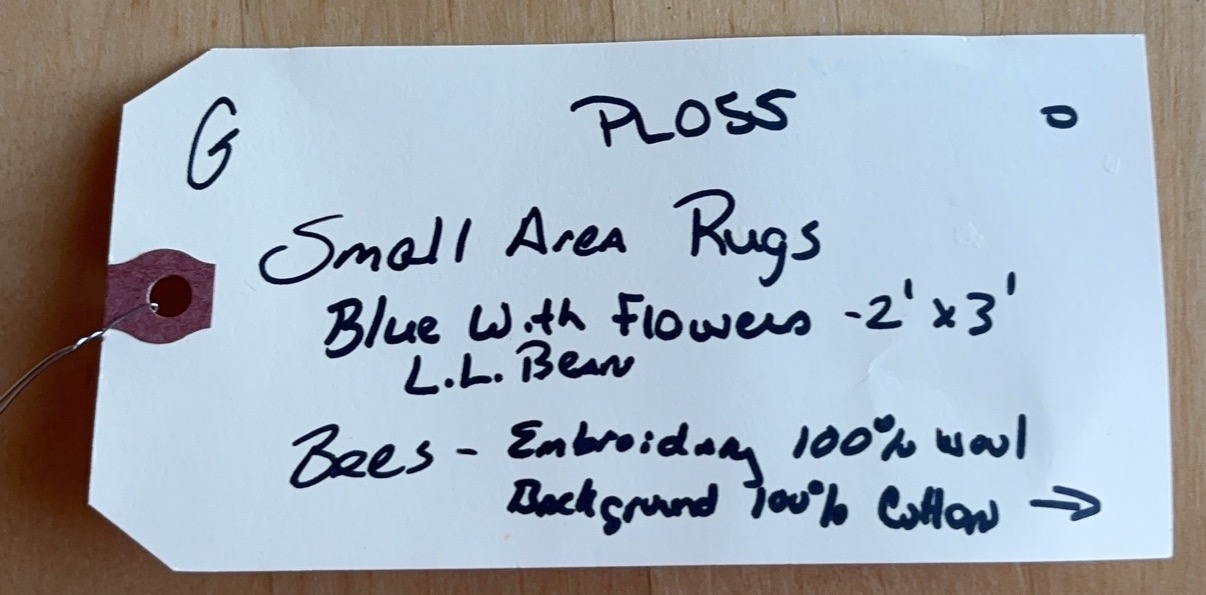 G PLOSS 0
Small Area Rugs
Blue With Flowers - 2' x 3'
L.L. Bean
Bees - Embroidary 100% wool
Background 100% Cotton →